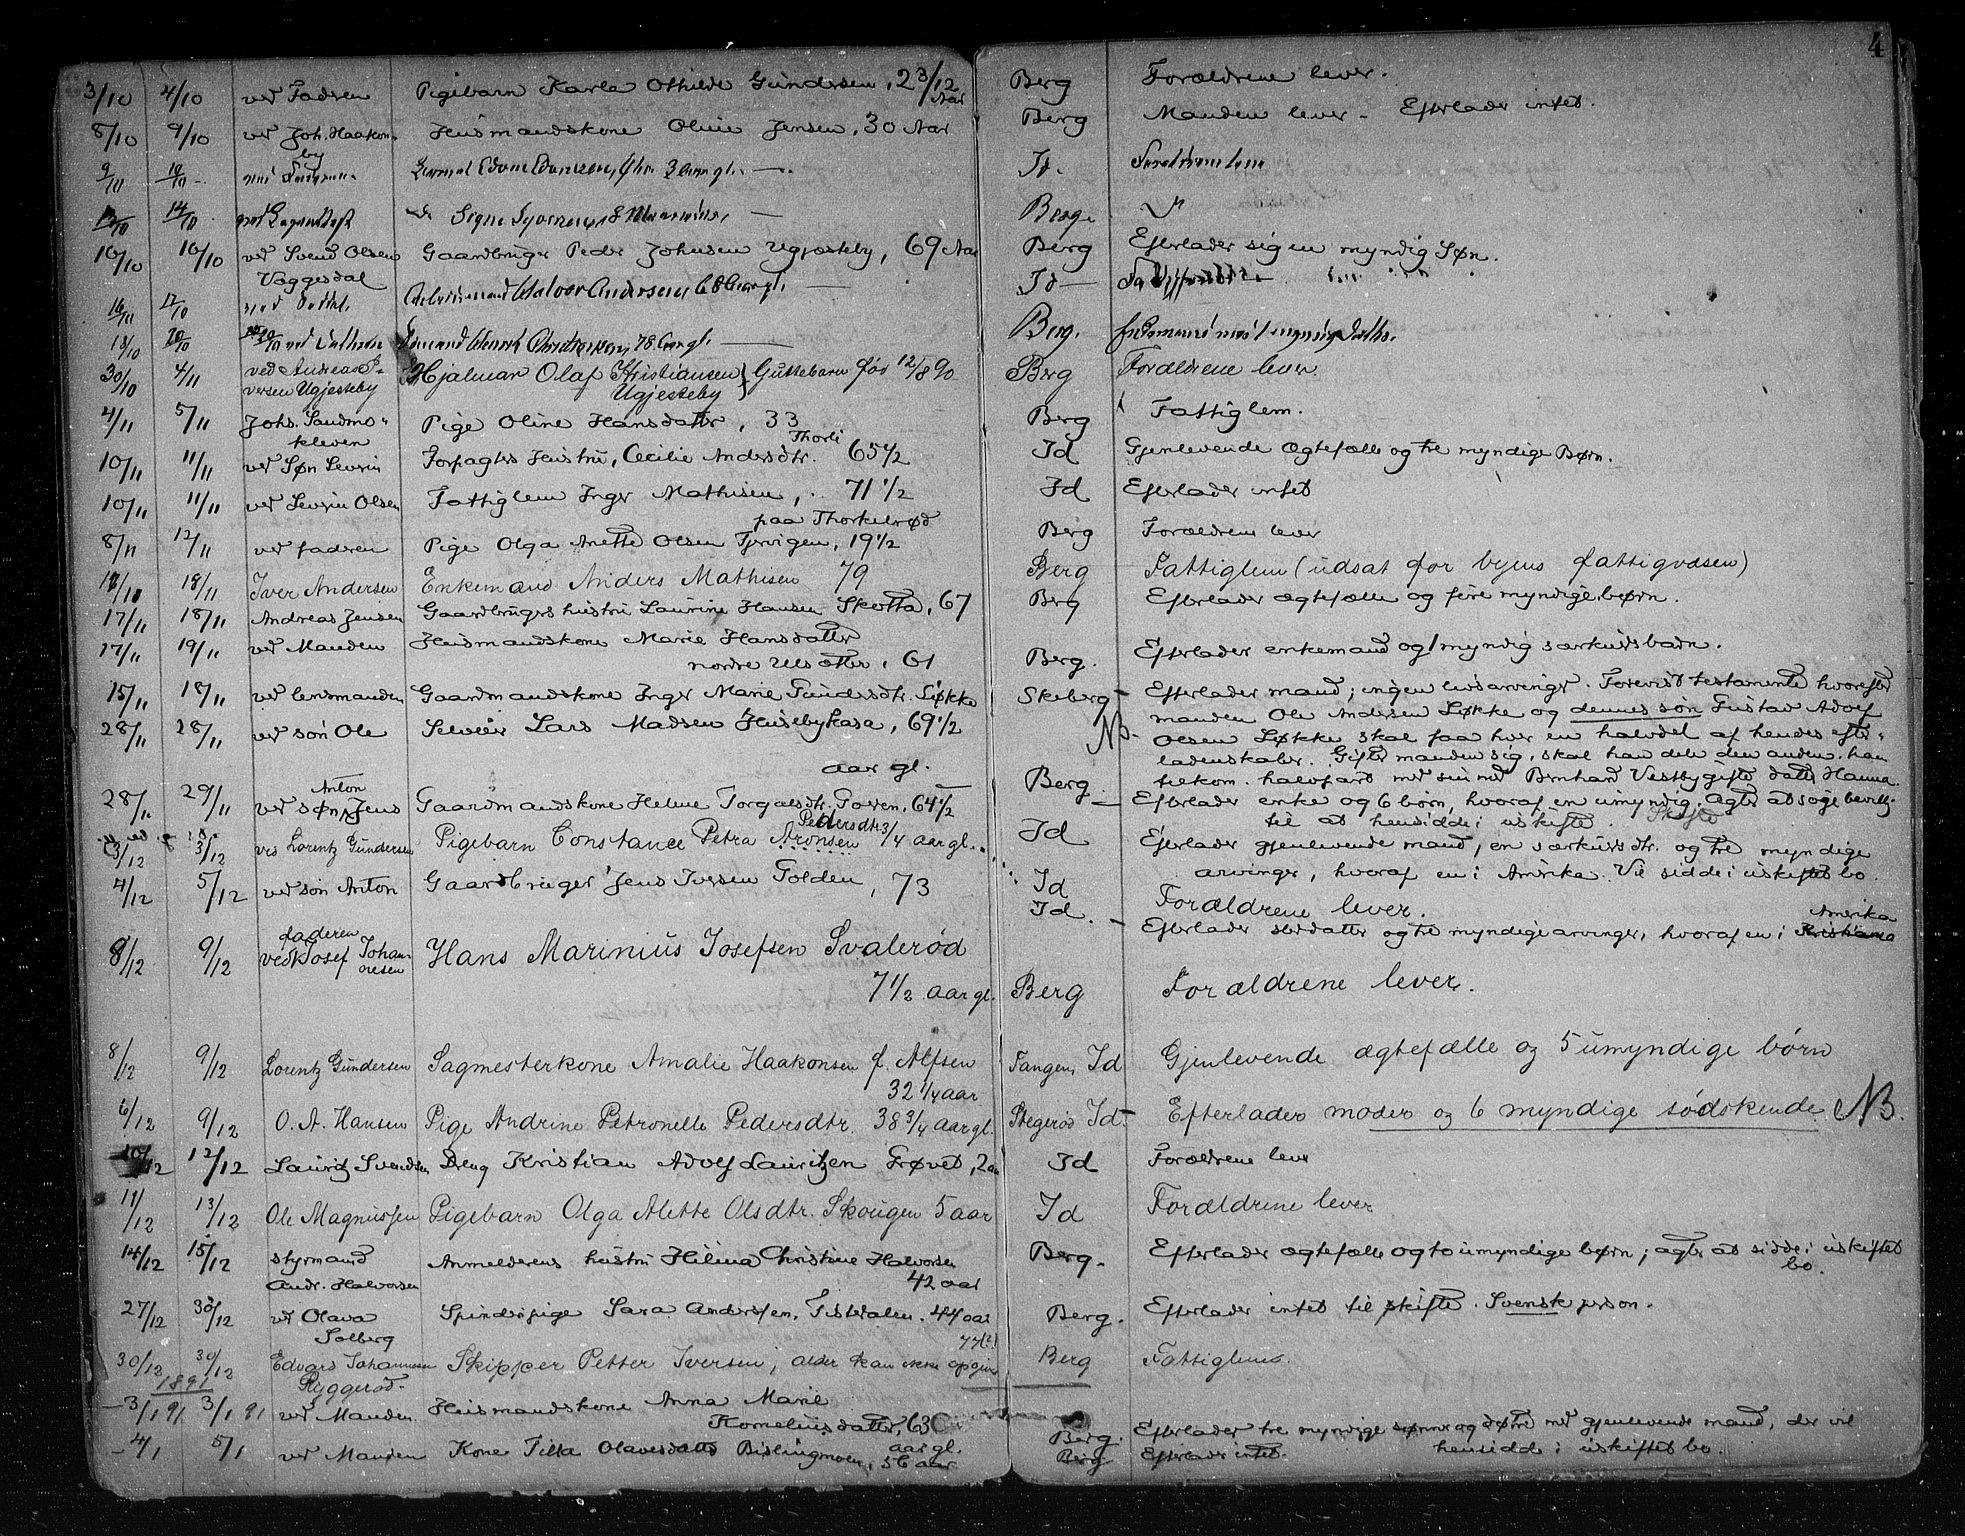 4
3/10 4/10 ved Fadren Pigebarn Karla Othilde Gundersen, 2 3/12 Aar Berg Forældrene lever.
8/10 9/10 ved Joh. Haakon- Husmandskone Oline Jensen, 30 Aar Berg Manden lever - Efterlader intet.
by
Id.
Signe Berg
10/10 10/10 ved Svend Olsen Gaardbruger Peder Johnsen Ugjesteby, 69 Aar Berg Efterlader sig en myndig Søn.
Vaggesdal
16/ 17/10 Halvor Andersen, Id
18/10 20/10 Christensen, 78 Berg.
30/10 4/11 ved Andreas I- Hjalmar Olaf Kristiansen } Guttebarn fød 12/8 90 Berg Forældrene lever
versen Ugjesteby Ugjesteby
4/11 5/11 Johs. Sandmo- Pige Oline Hansdatter, 33 Berg Fattiglem.
kleven Thorli
10/11 11/11 ved Søn Severin Forpagters Hustru, Cecilie Andersdtr. 65 1/2 Id Gjenlevende Ægtefælle og tre myndige Børn.
10/11 11/11 ved Severin Olsen Fattiglem Inger Mathisen, 71 1/2 Id Efterlader intet
paa Thorkelsrød
8/11 12/11 ved faderen Pige Olga Anette Olsen Tjervigen, 19 1/2 Berg Forældrene lever
18/11 Iver Andersen Enkemand Anders Mathisen 79 Berg Fattiglem (udsat for byens fattigvæsen)
17/11 18/11 Andreas Jensen Gaardbrugers hustru Laurine Hansen Skotta, 67 Berg Efterlader ægtefælle og fire myndige børn.
17/11 19/11 ved Manden Husmandskone Marie Hansdatter
nordre, 61 Berg. Efterlader enkemand og 1 myndig særkuldsbarn.
15/11 18/11 ved lensmanden Gaardmandskone Inger Marie Gundersdtr. Løkke Skeberg - Efterlader mand; ingen livsarvinger. Forevist testamente hvorefter
manden Ole Andersen Løkke og dennes søn Gustav Adolf
28/11 28/11 ved søn Ole Selveier Lars Madsen Husebykasa, 69 1/2 NB. Olsen Løkke skal faa hver en halvdel af hendes efter-
aar gl. ladenskaber. Gifter manden sig, skal han dele den anden ham
Berg tilkom. halvpart med sin med Bernhard Vestbygifte datter Hanna
28/11 29/11 ved søn Jens Anton Gaardmandskone Helene Torgalsdtr. Torren, 64 1/2 Efterlader enke og 6 børn, hvoraf en umyndig. Agter at søge bevill.
til at hensidde i uskifte. Skifte
3/12 3/12 ved Lorentz Gundersen Pigebarn Constance Petra Aronsen Pedersdtr 3/4 aar gl. Id Efterlader gjenlevende mand, en særkuldsdtr. og tre myndige
arvinger, hvoraf en i Amerika. Vil sidde i uskiftet bo.
4/12 5/12 ved søn Anton Gaardbruger Jens Iversen Folden, 73 Id Forældrene lever.
Id. - Efterlader og tre myndige arvinger, hvoraf en i Kristiania Amerika
8/12 9/12 ved faderen Josef Johan- Hans Marinius Josefsen Svalerød
nesen 7 1/2 aar gl. Berg Forældrene lever.
8/12 9/12 Lorentz Gundersen Sagmesterkone Amalie Haakonsen f. Alfsen Tangen, Id Gjenlevende ægtefælle og 5 umyndige børn
32 1/4 aar
6/12 9/12 O. A. Hansen Pige Andrine Petronelle Pedersdtr. 38 3/4 aar gl. Stegerød Id. Efterlader moder og 6 myndige sødskende NB.
10/12 12/12 Lauritz Svendsen Dreng Kristian Adolf Lauritzen Grøved, 2 aar Id Forældrene lever
11/12 13/12 Ole Magnussen Pigebarn Olga Alette Olsdtr. Skougen 5 aar Id Forældrene lever
14/12 15/12 styrmand Anmelderens hustru Hilma Christine Halvorsen Berg. Efterlader ægtefælle og to umyndige børn; agter at sidde i uskiftet
Andr. Halvorsen 42 aar bo.
27/12 30/12 ved Olava Spinderipige Sara Andersen, Tistedalen. 44 aar Berg. Efterlader intet til skifte. Svensk person.
Solberg 77(?)
30/12 30/12 Edvard Johannesen Skipper Petter Iversen, alder kan ikke opgives Berg Fattiglem.
1891 Ryggerød
3/1 91 3/1 91 ved Manden Husmandskone Anna Marie
Korneliusdatter, 63 aar gl. Berg. Efterlader tre myndige sønner og døtre med gjenlevende mand, der vil
hensidde i uskiftet bo.
4/1 5/1 ved Manden Kone Tilla Olavesdatter Bislingmoen, 56 aar Berg Efterlader intet.